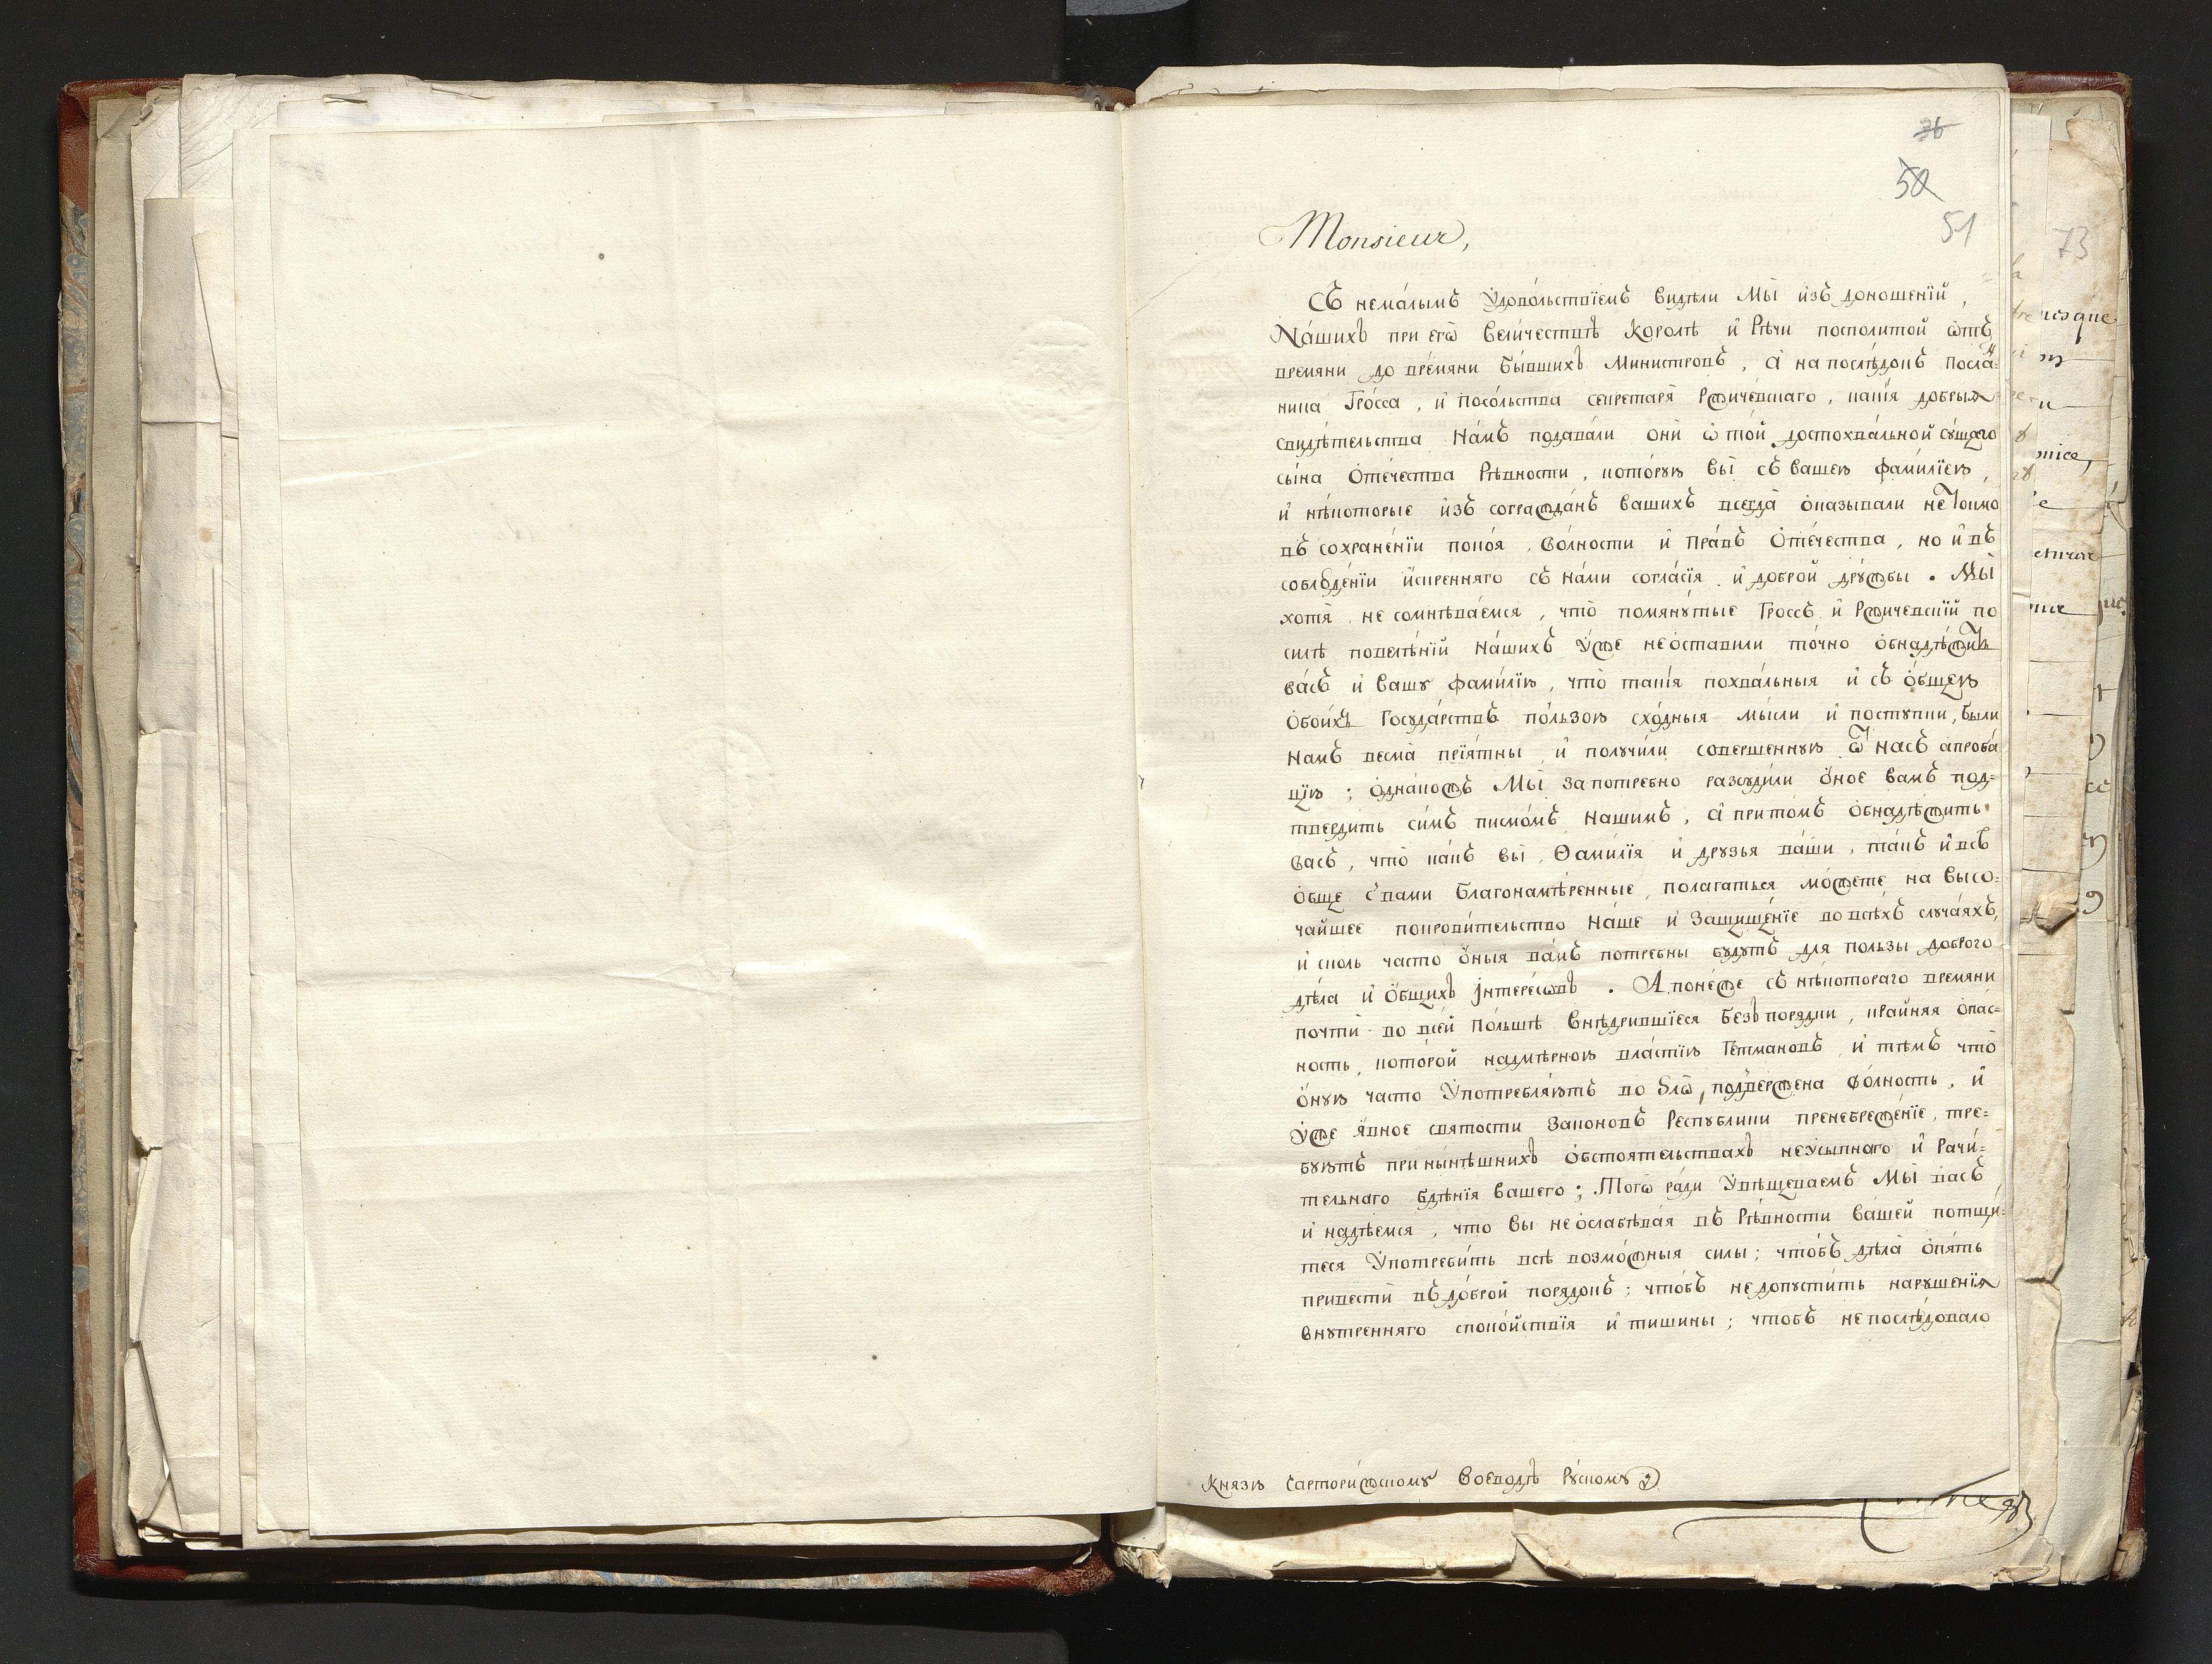 36
50
51
Monsieur,
Съ немалымъ Удовольствїемъ видѣли Мы изъ доношенїй,
Нашихъ при его Величествѣ Королѣ и Рѣчи посполитой отъ
времяни до времяни бывшихъ Министровъ, а на послѣдокъ Посла=
ника Гросса, и посольства секретаря Ржичевскаго, какїя добрыя
свидѣтельства Намъ подавали они о той достохвальной сущаго
сына Отечества Рѣвности, которую вы съ вашею фамилїею,
и нѣкоторые изъ согражданъ вашихъ всегда оказывали не токмо
въ сохраненїи покоя, волности и правъ Отечества, но и въ
соблюденїи искренняго съ нами согласїя и доброй дружбы. Мы
хотя не сомнѣваемся, что помянутые Гроссъ и Ржичевскїй по
силѣ повелѣнїй Нашихъ уже не оставили точно обнадѣжить
васъ и вашу фамилїю, что такїя похвальныя и съ общею
обоихъ Государствъ ползою сходныя мысли и поступки, были
намъ весма прїятны и получили совершенную ѿ насъ апроба
цїю; однакожъ Мы за потребно разсудили оное вамъ под=
твердить симъ писмомъ нашимъ, а притомъ обнадѣжить
васъ, что какъ вы, Фамилїя и друзья ваши, такъ и всѣ
обще с вами благонамѣренные, полагаться можете на высо=
чайшее покровительство Наше и защищенїе во всѣхъ случаяхъ,
и сколь часто оныя вамъ потребны будутъ для пользы доброго
дѣла и общихъ интересовъ. А понеже съ нѣкотораго времяни
почти во всей Польшѣ внѣдрившїеся безпорядки, крайняя опас=
ность, которой надмѣрною властїю Гетмановъ и тѣмъ что
оную часто употребляютъ во зло, подвержена волность, и
уже явное святости законовъ Республики пренебреженїе, тре=
буютъ при нынѣшнихъ обстоятельствахъ неусыпнаго и рачи=
тельнаго бдѣнїя вашего; Того ради увѣщеваемъ Мы васъ
и надѣемся, что вы не ослабѣвая въ Рѣвности вашей потщи=
теся употребить всѣ возможныя силы; чтобъ дѣла опять
привести въ доброй порядокъ; чтобъ не допустить нарушенїя
внутренняго спокойствїя и тишины; чтобъ не послѣдовало
Князю Сарторижскому Воеводѣ Рускому
73